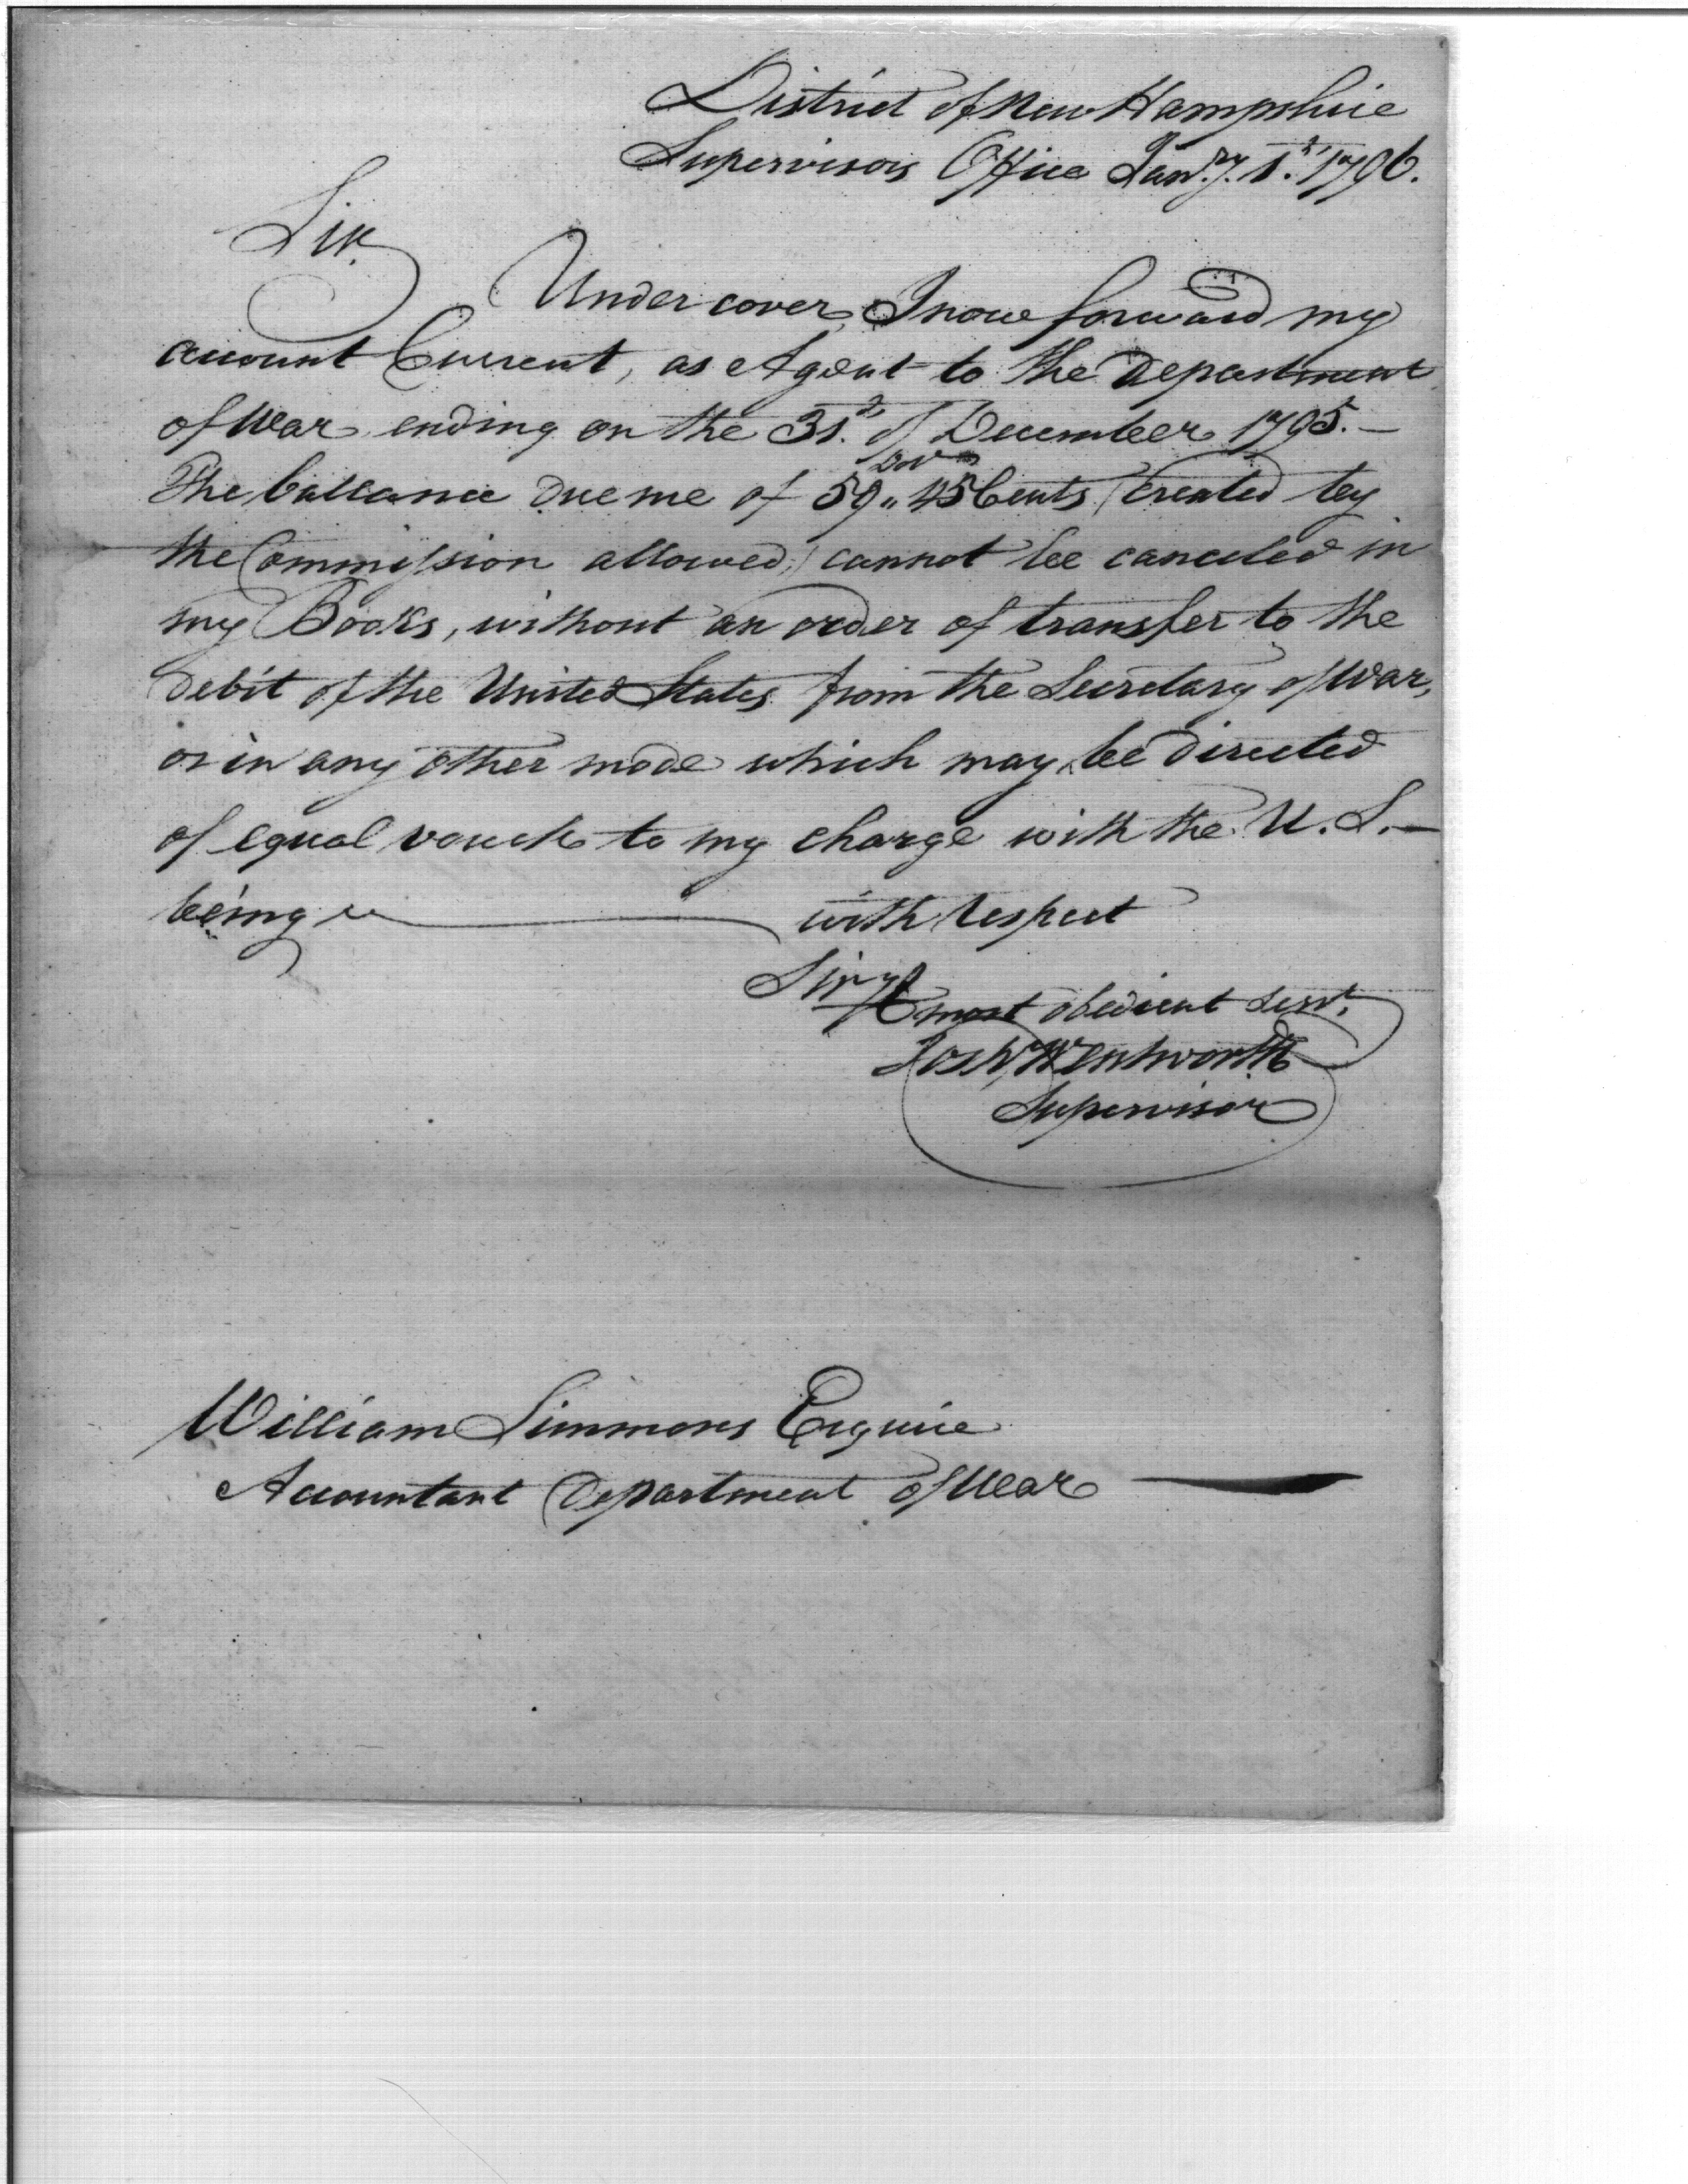 District of New Hampshire
Supervisors Office Jan.ry 1.st 1796.
Sir.
Under cover, I now forward my
account Current, as Agent to the Department
of War ending on the 31.st of December 1795.—
Dol
The ballance due me of 59,, 45 Cents (created by
the Commission allowed,) cannot be canceled in
my Books, without an order of transfer to the
debit of the United States from the Secretary of War,
or in any other mode which may be directed
of equal vouch to my charge with the U. S.—
being with respect
Sir yr
most obedient Servt.
Josh Wentworth
Supervisor
William Simmons Esquire
Accountant Department of War